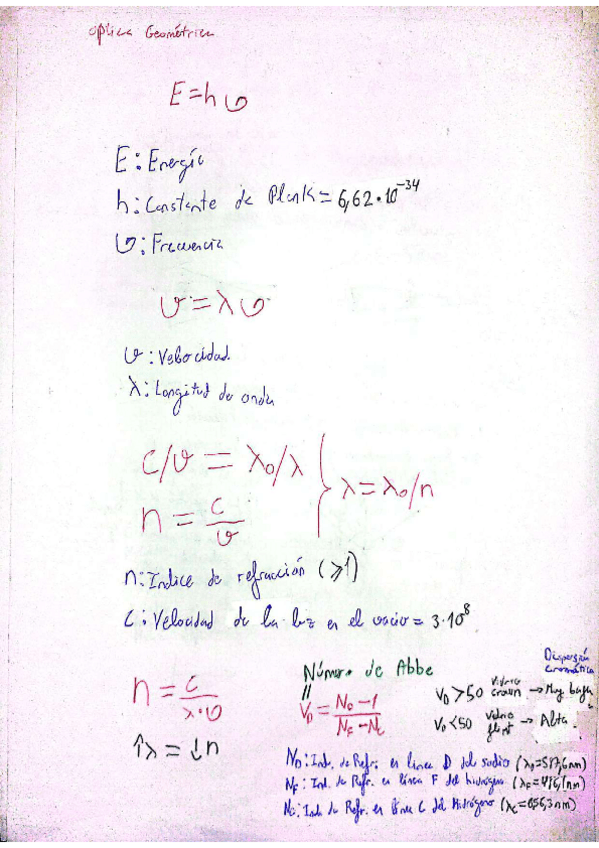 Óptica Geométrica
E=hν
E: Energía
h: Constante de Plank = 6,62·10⁻³⁴
ν: Frecuencia
v=λν
v: Velocidad
λ: Longitud de onda
c/v = λ₀/λ } λ=λ₀/n
n = c/v
n: Indice de refracción (≥1)
C: Velocidad de la luz en el vacio = 3·10⁸
Número de Abbe
n = c/(λ·ν)
||
V_D = (N_D-1)/(N_F-N_C)
↑λ = ↓n
Dispersión cromática
V_D>50 Vidrio crown → Muy baja
V_D<50 Vidrio flint → Alta
N_D: Ind. de Refr. en línea D del sodio (nm)
N_F: Ind. de Refr. en línea F del hidrógeno (nm)
N_C: Ind. de Refr. en línea C del Hidrógeno (λ_C=656,3nm)